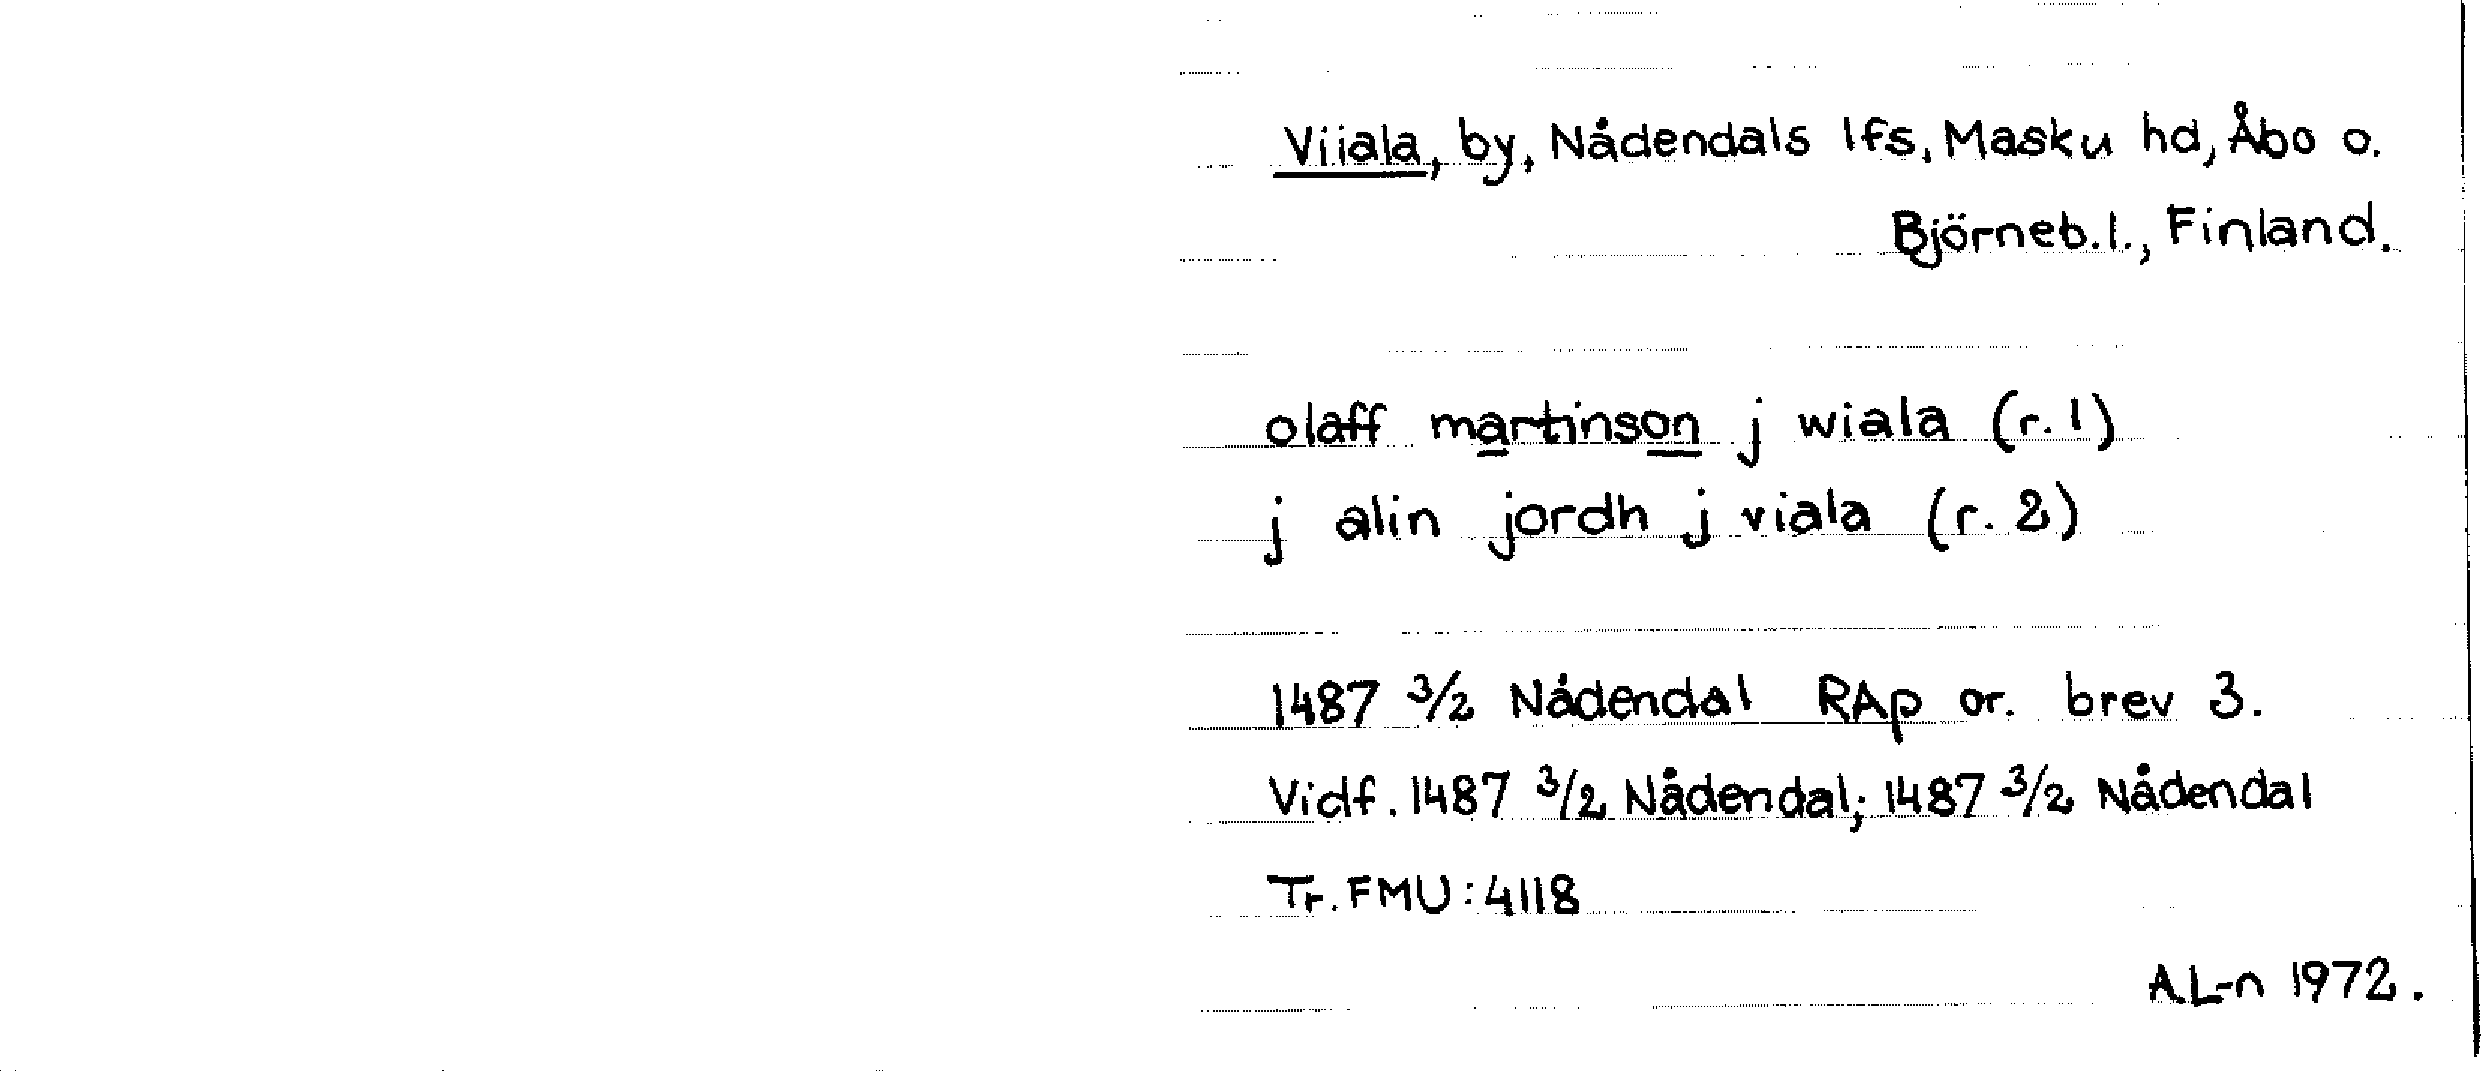 Viiala, by, Nådendals lfs, Masku hd, Åbo o.
Björneb.l., Finland.
olaff martinson j wiala (r. 1)
j alin jordh j viala (r. 2)
1487 3/2 Nådendal RAp or. brev 3.
Vidf. 1487 3/2 Nådendal; 1487 3/2 Nådendal
Tr. FMU: 4118
A.L-n 1972.